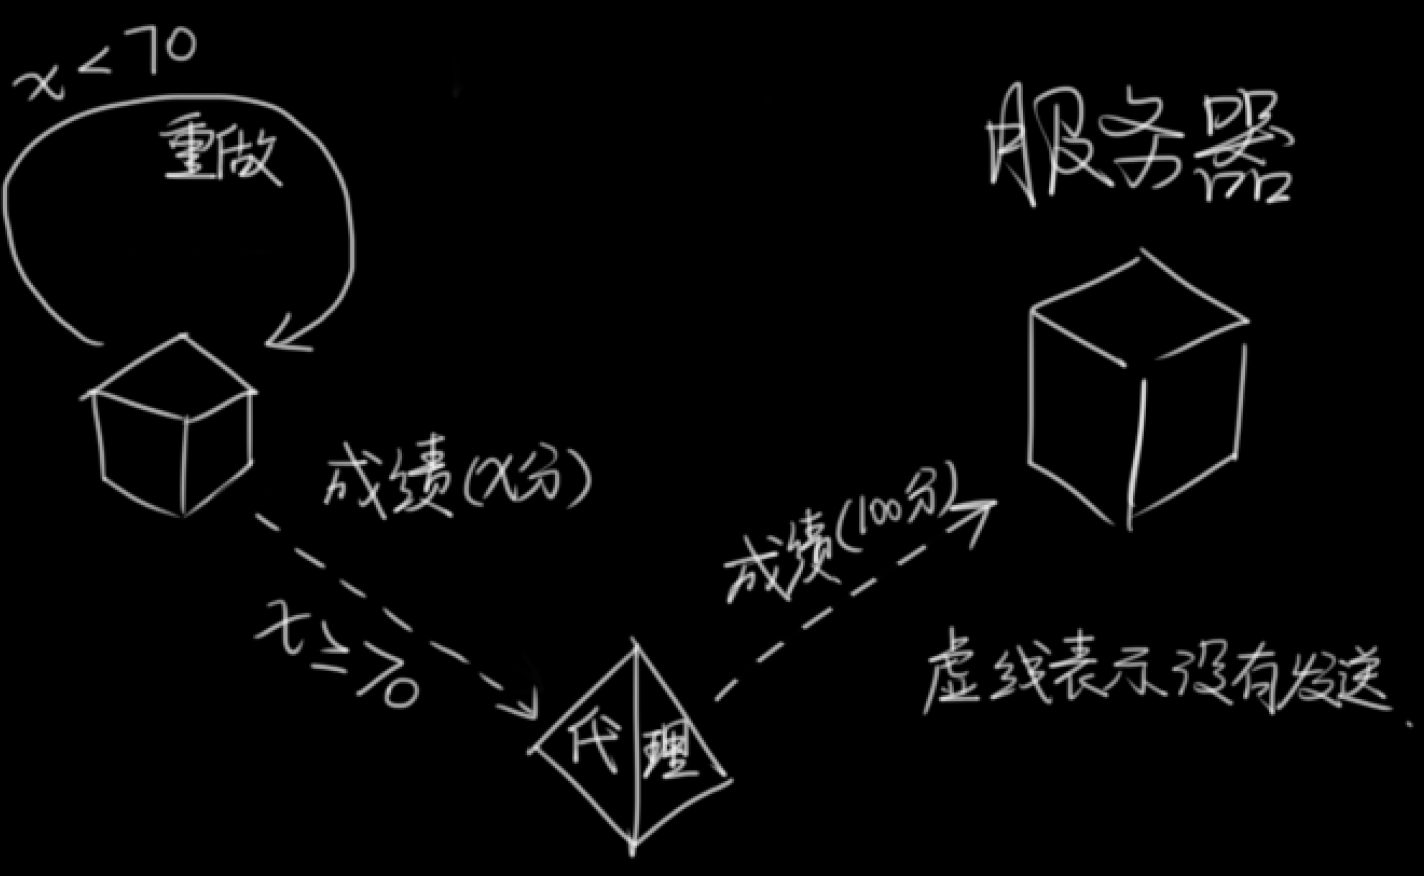 x < 70
重做
服务器
成绩(x分)
成绩(100分)
x ≥ 70
虚线表示没有发送.
代理